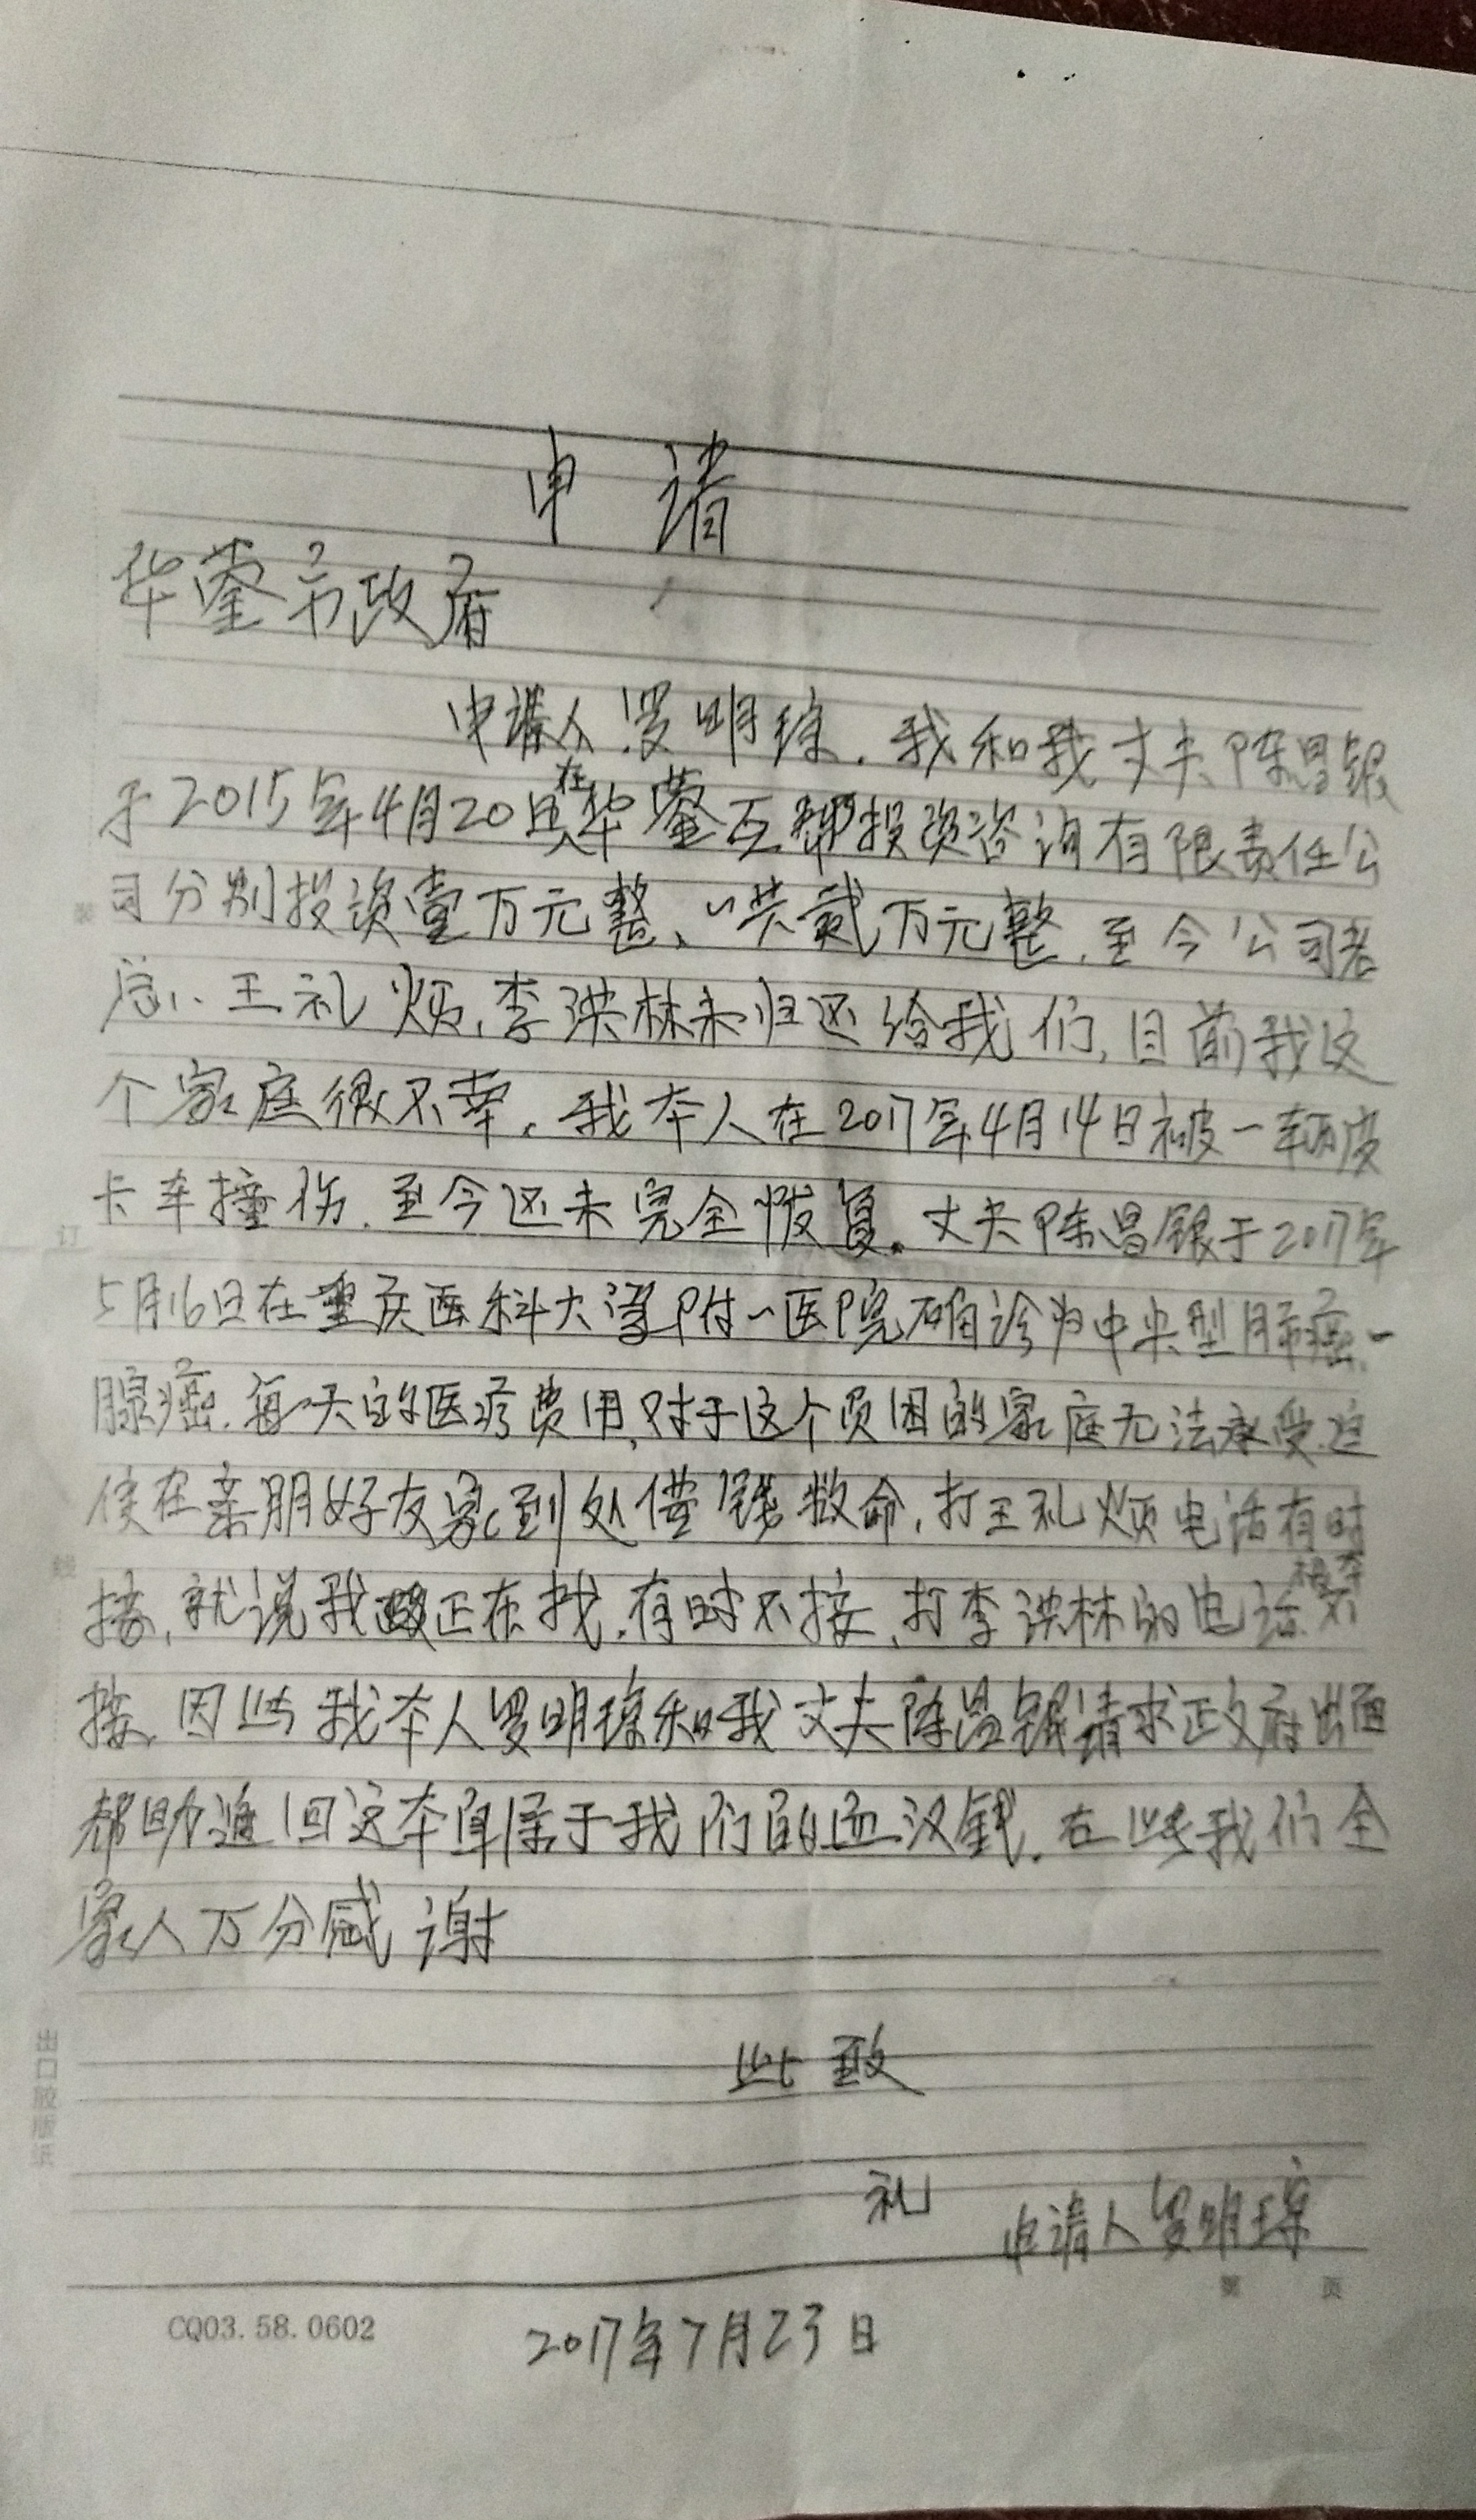 申请
华蓥市政府
申请人罗明琼.我和我丈夫陈昌银
于2015年4月20日在华蓥互帮投资咨询有限责任公
司分别投资壹万元整、一共贰万元整.至今公司老
总、王礼烦,李洪林未归还给我们,目前我这
个家庭很不幸.我本人在2017年4月14日被一辆皮
卡车撞伤.至今还未完全恢复。丈夫陈昌银于2017年
5月16日在重庆医科大学附一医院确诊为中央型肺癌-
腺癌.每天的医疗费用,对于这个贫困的家庭无法承受.迫
使在亲朋好友家到处借钱救命,打王礼烦电话有时
接,就说我正在找.有时不接,打李洪林的电话根本不
接,因此我本人罗明琼和我丈夫陈昌银请求政府出面
帮助追回这本直属于我们的血汉钱.在此我们全
家人万分感谢
此致
礼
申请人罗明琼
第 页
CQ03.58.0602
2017年7月23日
装
订
线
出口胶版纸